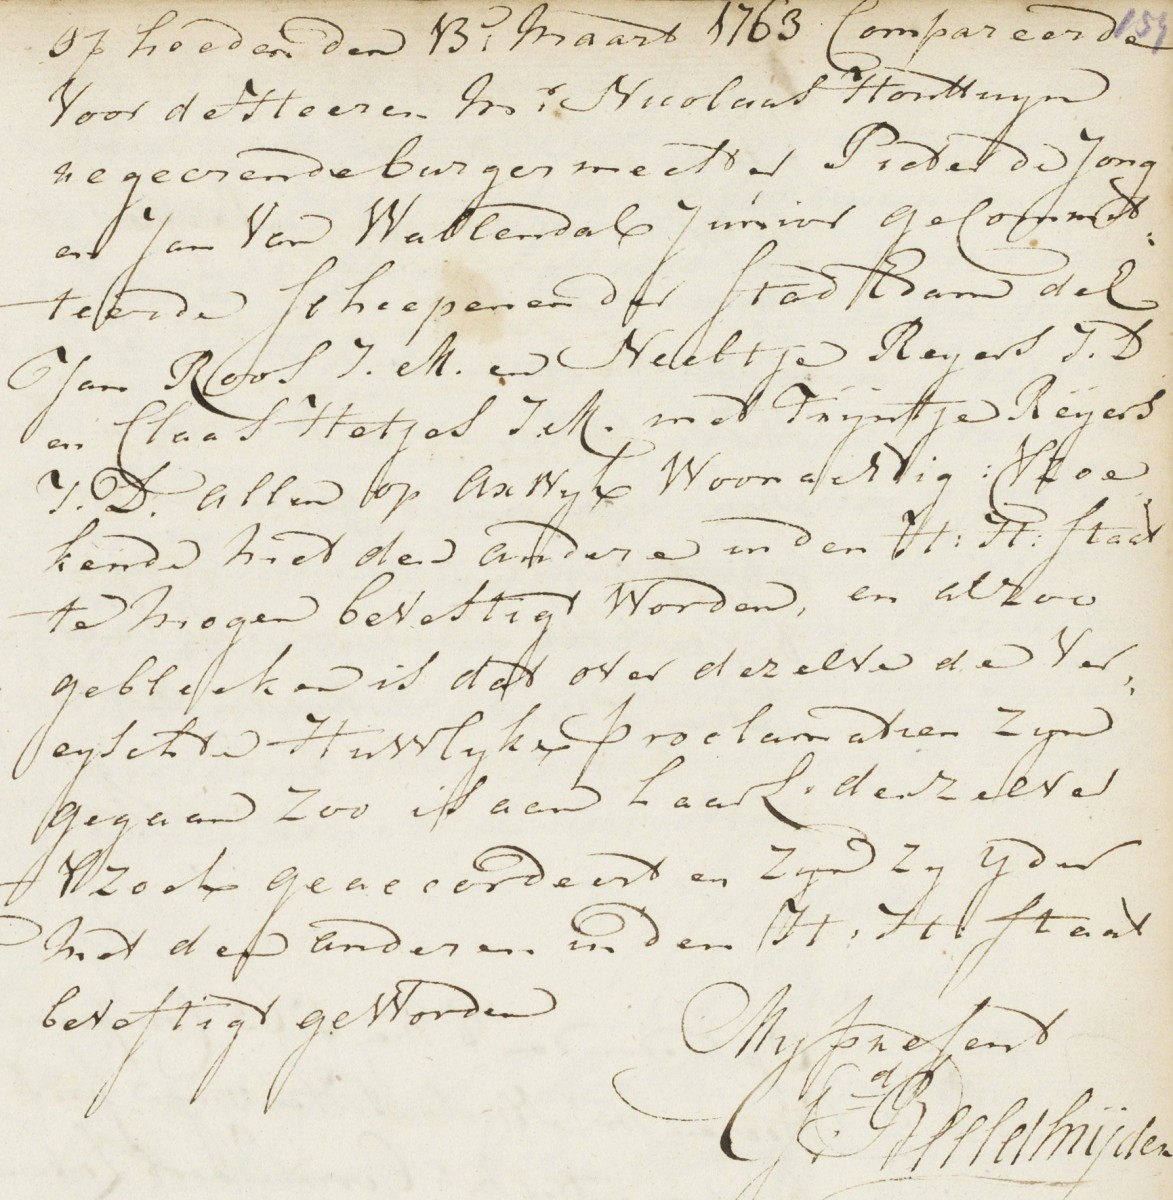 op heeden den 13.e Maart 1763 Compareerde
154
voor de Heeren Mr. Nicolaas Houttuyn
regeerende burgermeester Pieter de Jong
en Jan Van Wallendal Junior gecommit,
teerde scheepenen der stad Edam del
Jan Roos J. M. en Neeltje Reyers J. D
en Claas Hetjes J.M. met Trijntje Reijers
J. D. allen op Axwyk Woonachtig : Vzoe
kende met den andere in den H: H: staat
te mogen bevestigt Worden, en alzoo
gebleeken is dat over dezelve de Ver,
eyschte Huwlyks proclamatien zyn
gegaan zoo is aan haarl: derzelver
Vzoek geaccordeert en zyn zy yder
met den anderen in den H: H: staat
bevestigt geworden
My present